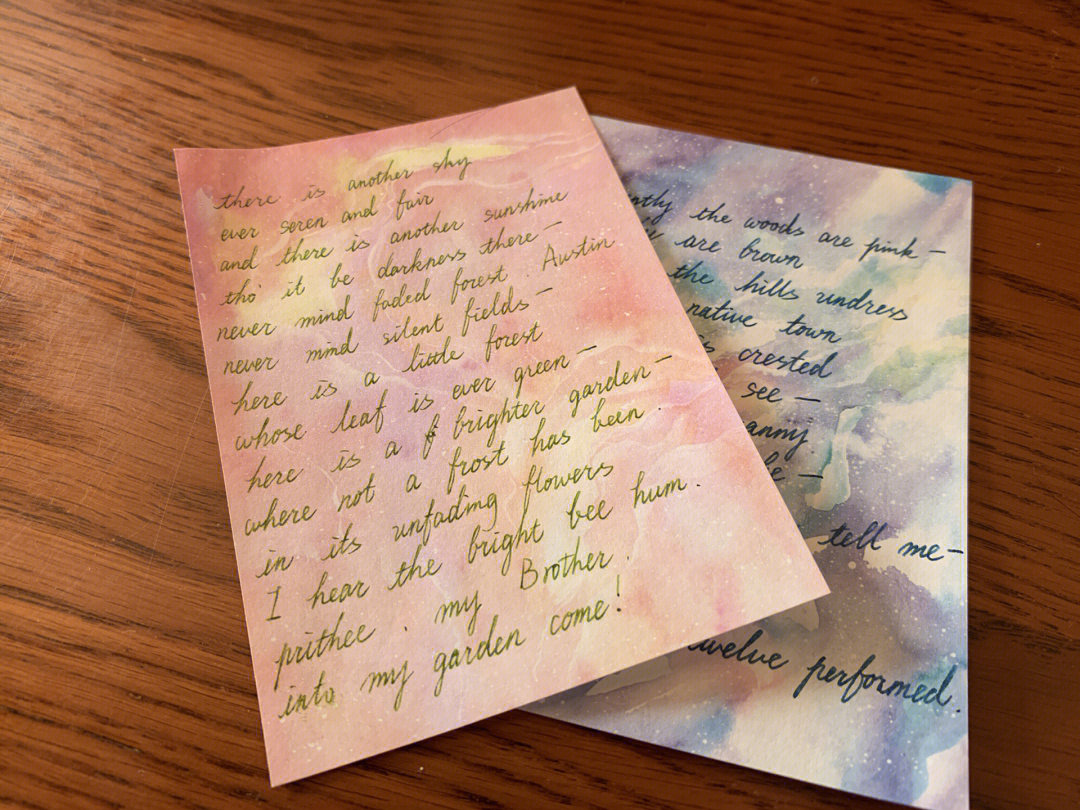 there is another sky
ever seren and fair
and there is another sunshine
tho' it be darkness there —
never mind faded forest. Austin
never mind silent fields —
here is a little forest
whose leaf is ever green —
here is a brighter garden —
where not a frost has been.
in its unfading flowers
I hear the bright bee hum.
prithee. my Brother.
into my garden come!
the woods are pink —
are brown
the hills undress
native town
crested
see —
tell me—
performed.